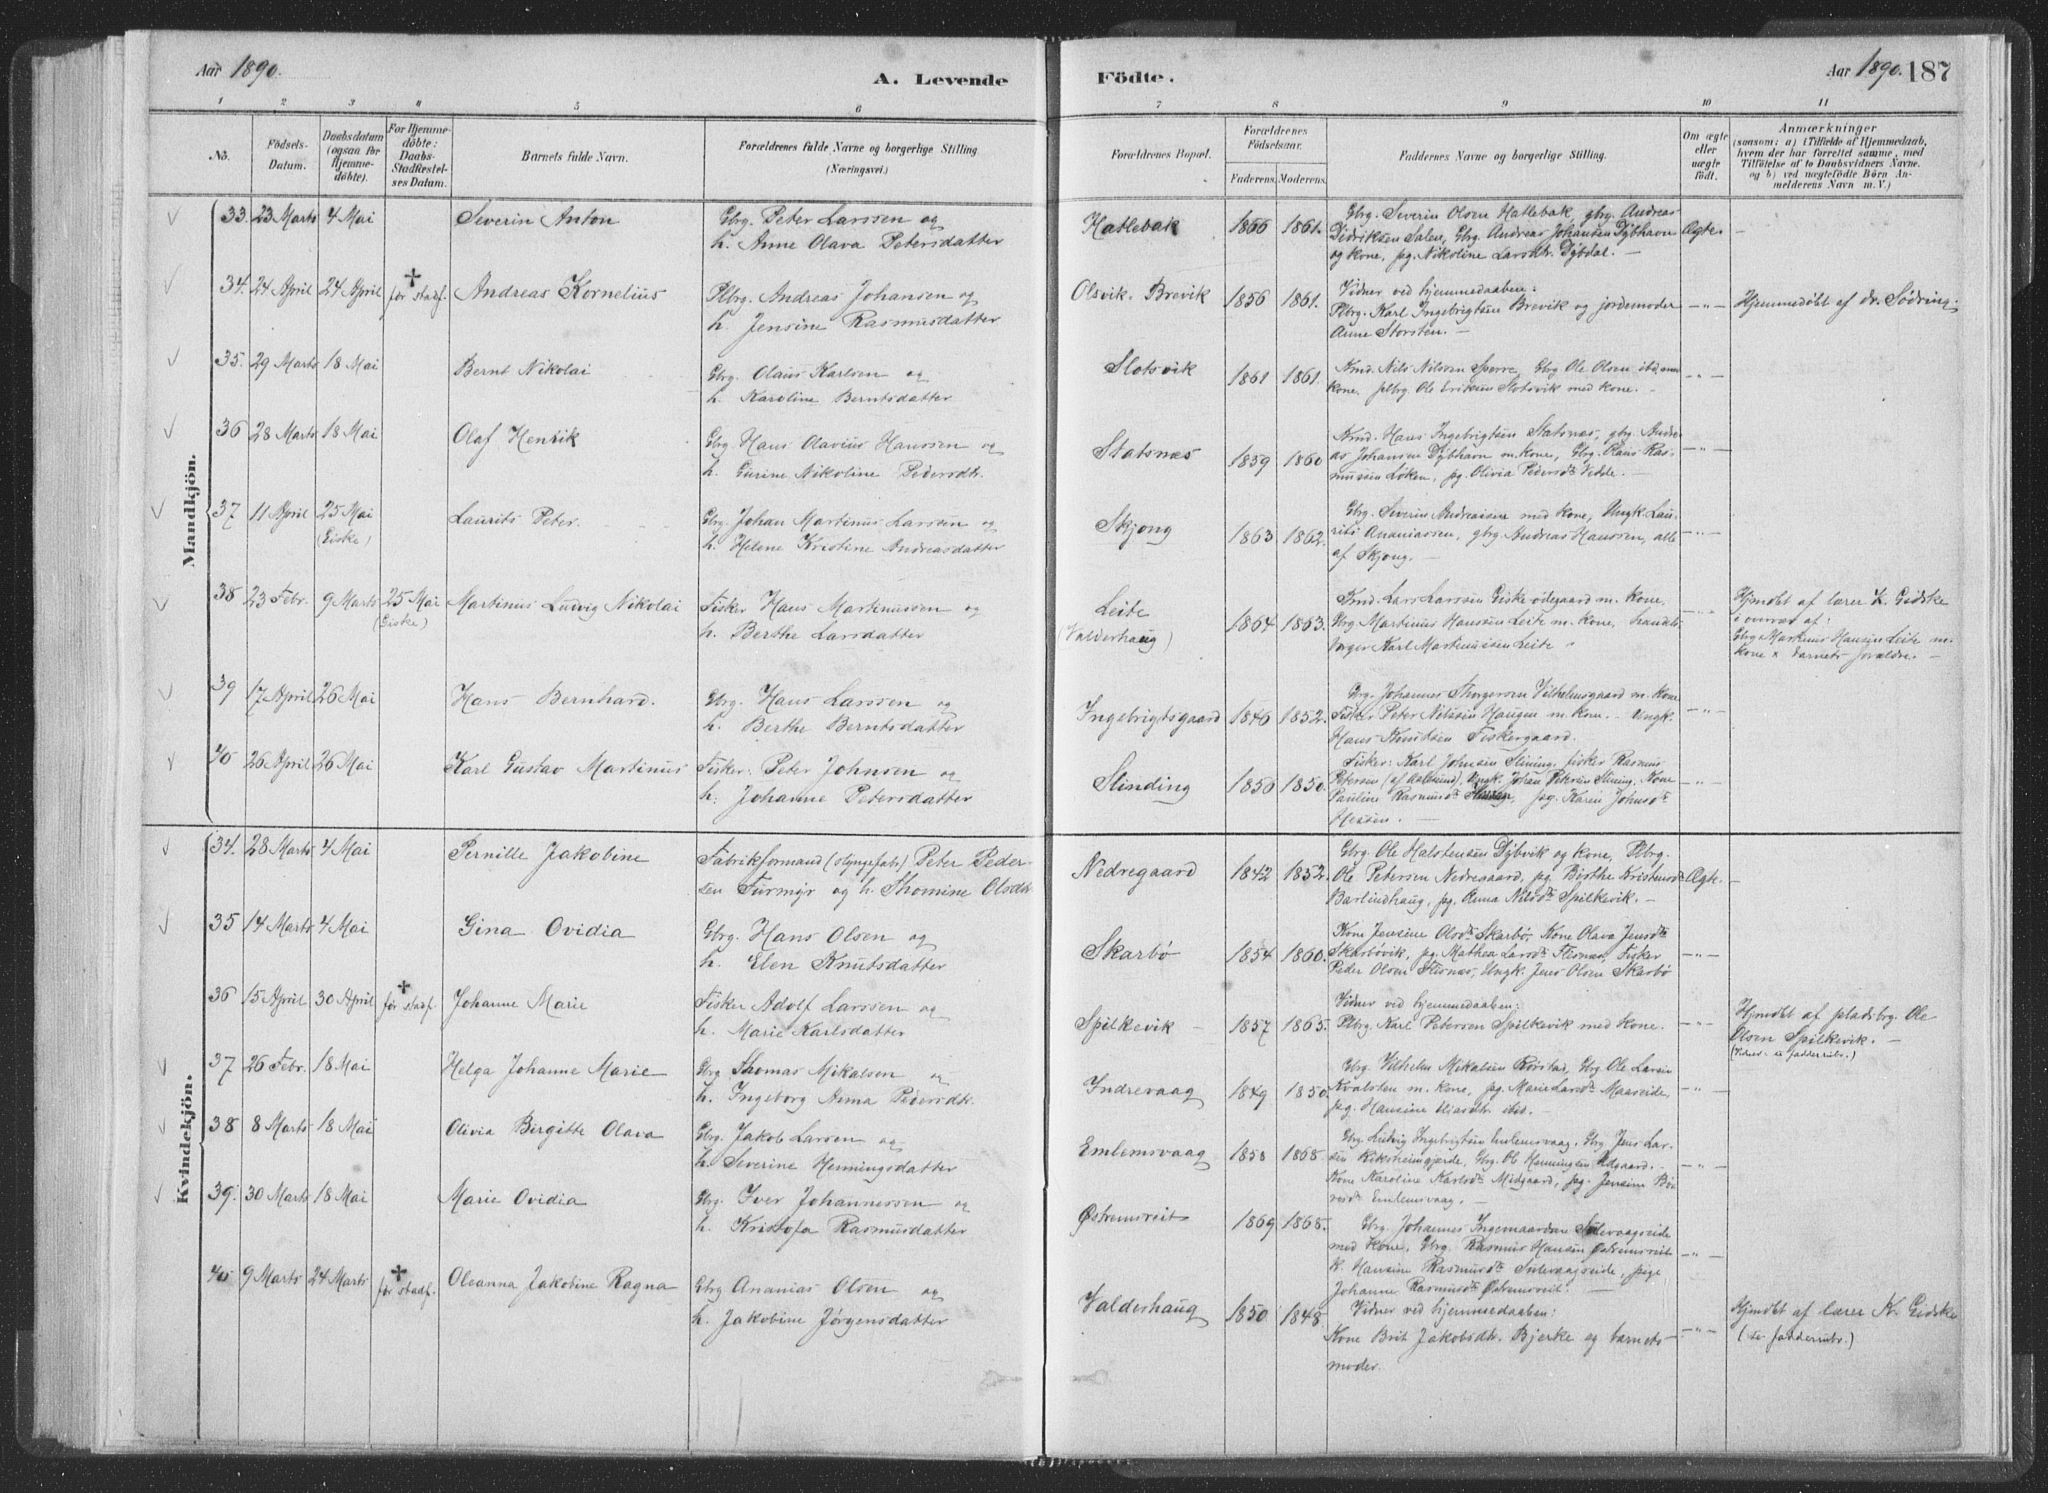 Aar 1890.
A. Levende
Födte.
Aar 1890. 187
1 2 3 4 5 6 7 8 9 10 11
No. Födsels-Datum. Daabsdatum (ogsaa for Hjemme-döbte). For Hjemme-döbte: Daabs-Stadfæstel-ses Datum. Barnets fulde Navn. Forældrenes fulde Navne og borgerlige Stilling (Næringsvei.) Forældrenes Bopæl. Forældrenes Födselsaar. Faderens. Moderens. Faddernes Navne og borgerlige Stilling. Om ægte eller uægte födt. Anmærkninger (saasom: a) i Tilfælde af Hjemmedaab, hvem der har forrettet samme, med Tilföielse af to Daabsvidners Navne. og b) ved uægtefödte Börn An-melderens Navn m. V.)
Mandkjön.
33. 23 Marts 4 Mai Severin Anton Gbrg. Peter Larssen og
h. Anne Olava Petersdatter
Hatlebak 1866 1861. Gbrg. Severin Olsen Hatlebak, gbrg. Andreas
Didriksen Salen, Gbrg. Andreas Johansen Dybhavn Ægte. —
og kone, pg. Nikoline Larsdtr. Dybdal. —
34. 24 April 24 April + før stadf. Andreas Kornelius Plbrg. Andreas Johansen og
h. Jensine Rasmusdatter
Olsvik. Brevik 1856 1861. Vidner ved hjemmedaaben:
Plbrg. Karl Ingebrigtsen Brevik og jordemoder —"— Hjemmedøbt af dr. Sødring.
Anne Storsten. —
35. 29 Marts 18 Mai Bernt Nikolai Gbrg. Olaus Karlsen og
h. Karoline Berntsdatter
Slotsvik 1861 1861. Kmd. Nils Nilssen Sperre, Gbrg Ole Olsen ibd, med
kone, plbrg. Ole Eriksen Slotsvik med kone. — —"—
36 28 Marts 18 Mai Olaf Henrik Gbrg Hans Olavius Hanssen og
h. Gurine Nikoline Pedersdtr.
Statsnæs 1859 1860 Kmd. Hans Ingebrigtsen Statsnæs, gbrg. Andre-
as Johansen Dybhavn m. kone, Gbrg. Claus Ras- —"—
mussen Løken, pg. Olivia Pedersdtr. Vedde. —
37 11 April 25 Mai (Giske) Laurits Peter. Gbrg. Johan Martinus Larssen og
h. Helene Kristine Andreasdatter
Skjong 1863 1862. Gbrg. Severin Andreassen med kone, Ungk. Lau-
rits Ananiassen, gbrg Andreas Hanssen, alle —"—
af Skjong. —
38 23 Febr. 9 Marts 25 Mai (Giske) Martinus Ludvig Nikolai Fisker Hans Martinussen og
h. Berthe Larsdatter
Leite (Valderhaug) 1864 1863. Kmd. Lars Larssen Giske ødegaard m. kone,
Gbrg Martinus Hanssen Leite m. kone, handels-
borger Karl Martinussen Leite.
Hjmdøbt af lærer K. Gidske
i overvær af:
Gbrg. Martinus Hanssen Leite m.
kone & barnets forældre. —
39 17 April 26 Mai Hans Bernhard. Gbrg. Hans Larssen og
h. Berthe Berntsdatter
Ingebrigtsgaard 1846 1852. Gbrg. Johannes Thorgersen Vilhelmsgaard m. kone
Fisker Peter Nilssen Haugen m. kone. Ungk. —"—
Hans Knudsen Fiskergaard.
40 26 April 26 Mai Karl Gustav Martinus Fisker: Peter Johnsen og
h. Johanne Petersdatter
Slinding 1856 1850. Fisker: Karl Johnsen Slining, fisker Rasmus
Petersen (af Aalesund), Ungk. Johan Petersen Slining, Kone —"—
Pauline Rasmusdtr., pg. Karen Johnsdtr
Hessen. —
Kvindekjön.
34. 28 Marts 4 Mai Pernille Jakobine Fabrikformand (Olyngefab.) Peter Peder-
sen Furmyr og h. Thomine Olsdtr.
Nedregaard 1842 1852. Gbrg. Ole Halstensen Dybvik og kone, Plbrg.
Ole Petersen Nedregaard, pg Birthe Kristensdtr. Ægte. —
Barlindhaug, pg. Anna Nilsdtr Spilkevik. —
35 14 Marts 4 Mai Gina Ovidia Gbrg. Hans Olsen og
h. Elen Knutsdatter
Skarbø 1854 1860. Kone Jensine Olsdtr Skarbø, Kone Olava Jensdtr
Skarbøvik, pg. Mathea Larsdtr Flesnæs, Fisker —"—
Peder Olsen Flesnæs, Ungk. Jens Olsen Skarbø
36 15 April 30 April + før stadf. Johanne Marie Fisker Adolf Larssen og
h. Marie Karlsdatter
Spilkevik 1857 1865. Vidner ved hjemmedaaben:
Plbrg. Karl Petersen Spilkevik med kone. —"—
Hjmdøbt af pladsbrg. Ole
Olsen Spilkevik. —
(Vidner se fadderrubr.)
37 26 Febr. 18 Mai Helga Johanne Marie Gbrg Thomas Mikalsen og
h. Ingeborg Anna Pedersdtr.
Indrevaag 1849 1850. Gbrg. Vilhelm Mikalsen Rørstad, Gbrg Ole Larsen
Kvalsten m. kone, pg. Marie Larsdtr Maaseide, —"—
pg. Hansine Eliasdtr. ibd. —
38 8 Marts 18 Mai Olivia Birgitte Olava Gbrg. Jakob Larsen og
h. Severine Henningsdatter
Emlemsvaag 1858 1868. Gbrg Ludvig Ingebrigtsen Emlemsvaag. Gbrg Jens Lar-
sen Riksheimgjerde, Gbrg. Ole Henningsen Midgaard. — —"—
Kone Karoline Karlsdtr Midgaard, pg. Jensine Bø-
versdtr Emlemsvaag. —
39. 30 Marts 18 Mai Marie Ovidia Gbrg. Iver Johannessen og
h. Kristofa Rasmusdatter
Østremsreit 1869 1865. Gbrg. Johannes Ingemaardsen Sulevaagseide
med kone, Gbrg. Rasmus Hansen Østremsreit —"—
K. Hansine Rasmusdtr Sulevaagseide, pige
Johanne Rasmusdtr Østremsreit. —
40 9 Marts 24 Marts + før stadf. Oleanna Jakobine Ragna Gbrg Ananias Olsen og
h. Jakobine Jørgensdatter
Valderhaug 1850 1848. Vidner ved hjemmedaaben:
Kone Brit Jakobsdtr. Bjerke og barnets —"—
moder.
Hjmdøbt af lærer K. Gidske
(se fadderrubr.)